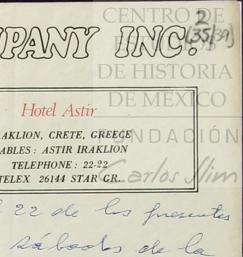 CENTRO DE
2
(35/39)
MPANY INC.
DE HISTORIA
DE MÉXICO
Hotel Astir
RAKLION, CRETE, GREECE
FUNDACIÓN
ABLES: ASTIR IRAKLION
TELEPHONE: 22-22
Carlos Slim
TELEX 26144 STAR GR.
22 de los presentes
sábados de la